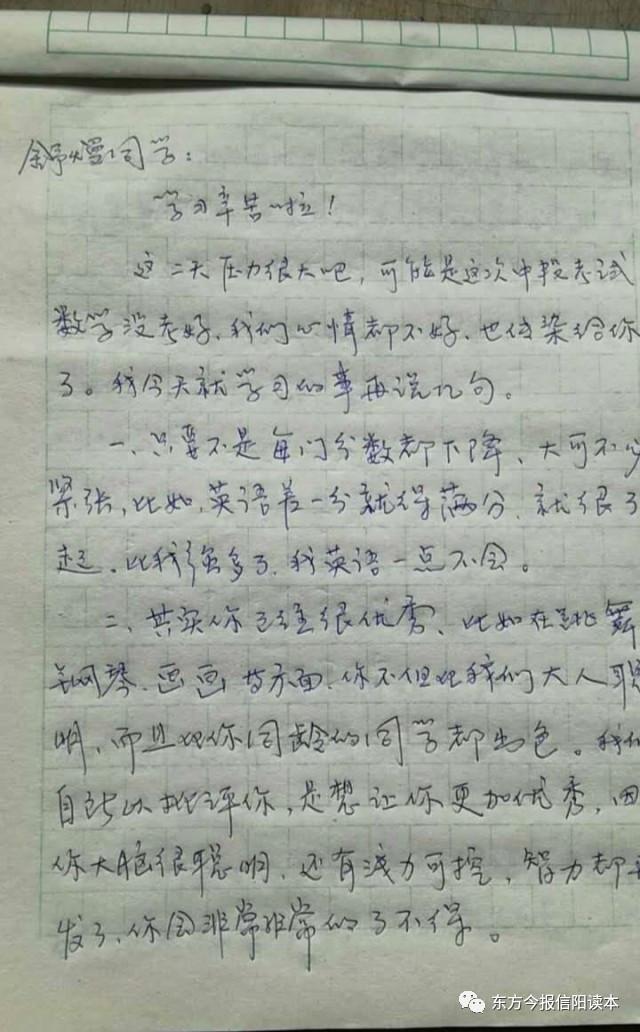 舒熳同学：
学习辛苦啦！
这二天压力很大吧，可能是这次中段考试
数学没考好，我们心情都不好，也传染给你
了。我今天就学习的事再说几句。
一、只要不是每门分数都下降，大可不必
紧张，比如，英语差一分就得满分，就很了
起，比我强多了，我英语一点不会。
二、其实你已经很优秀，比如在跳舞
钢琴、画画等方面，你不但比我们大人聪
明，而且比你同龄的同学都出色。我们
自所以批评你，是想让你更加优秀，因
你大脑很聪明，还有潜力可挖，智力都开
发了，你会非常非常的了不得。
东方今报信阳读本